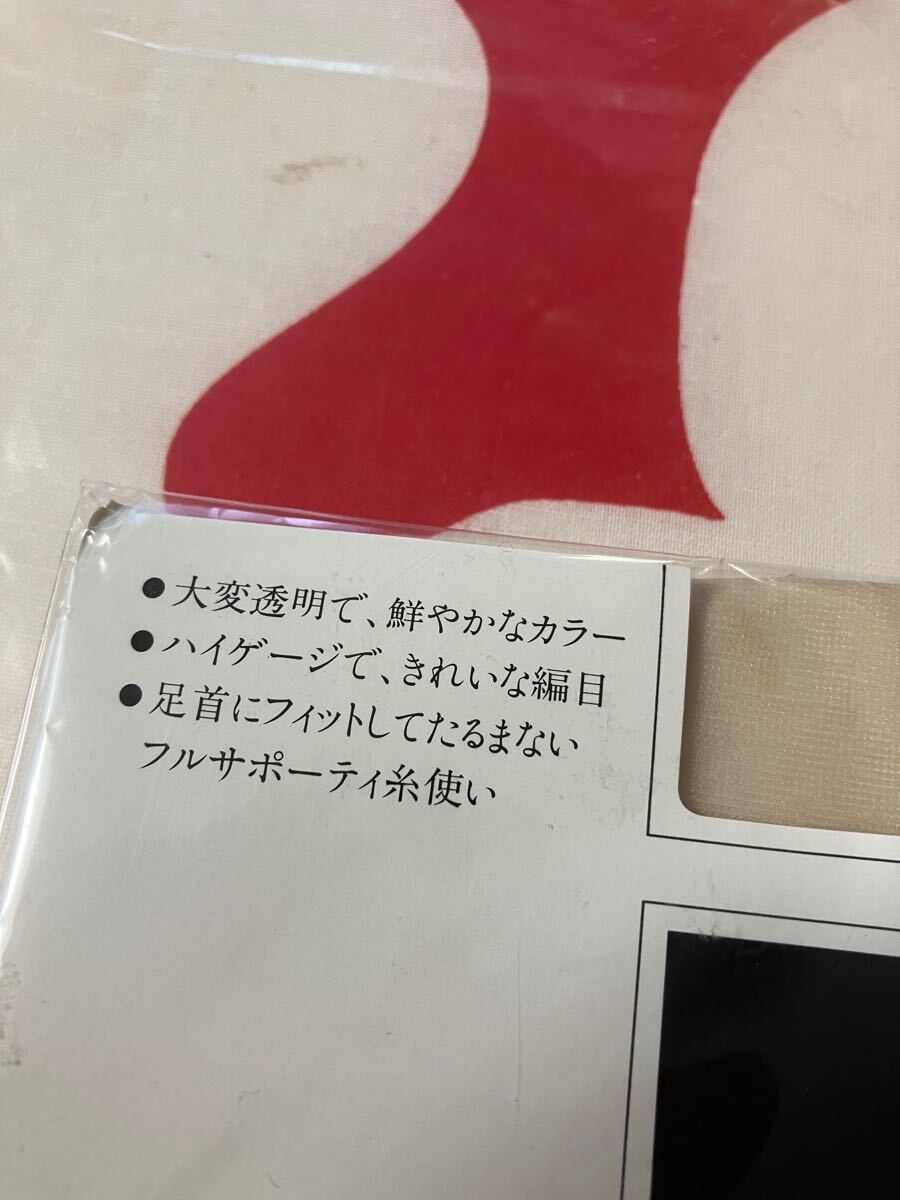 ●大変透明で、鮮やかなカラー
●ハイゲージで、きれいな編目
●足首にフィットしてたるまない
フルサポーティ糸使い